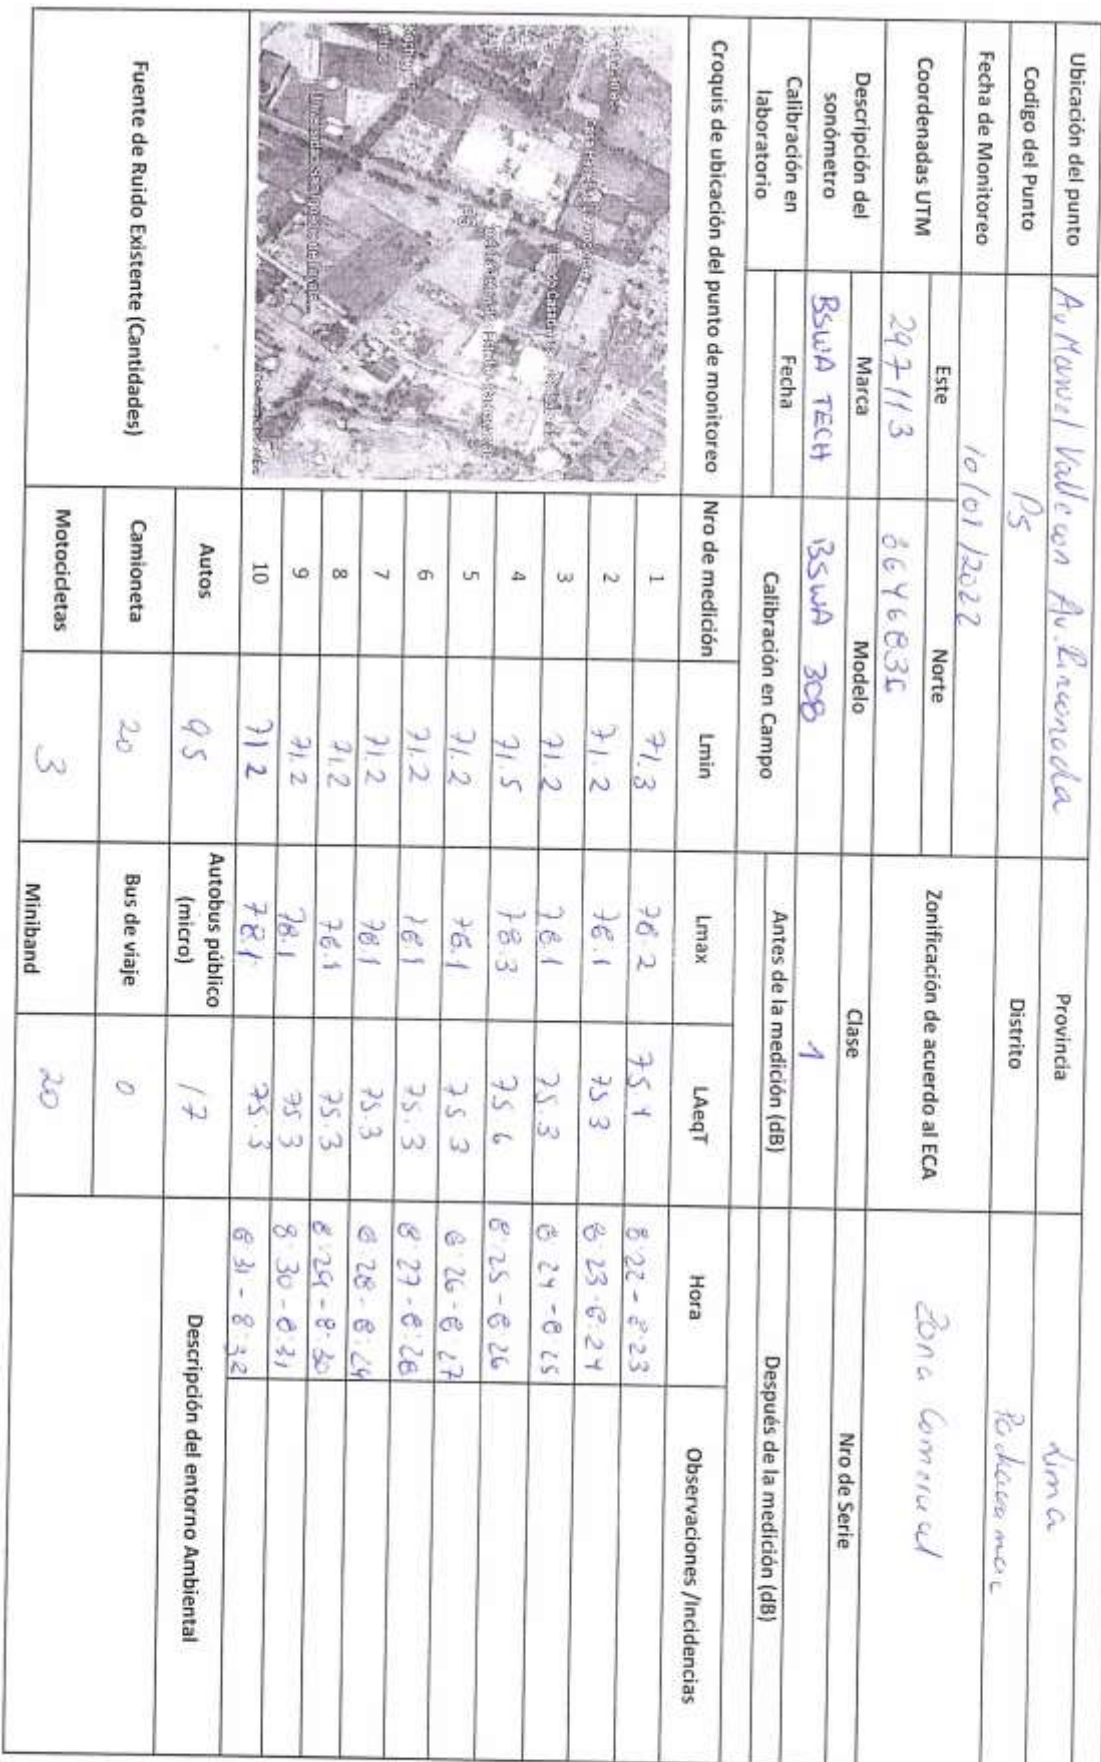 Ubicación del punto Av Manuel Valle con Av. Rinconada Provincia Lima
Codigo del Punto P5 Distrito Pachacamac
Fecha de Monitoreo 10/01/2022
Coordenadas UTM Este Norte Zonificación de acuerdo al ECA Zona Comercial
297113
Descripción del sonómetro Marca Modelo Clase Nro de Serie
BSWA TECH BSWA 308 1
Calibración en laboratorio Fecha Calibración en Campo Antes de la medición (dB) Después de la medición (dB)
Croquis de ubicación del punto de monitoreo Nro de medición Lmin Lmax LAeqT Hora Observaciones /Incidencias
1 71.3 78.2 75.4 8:22 - 8:23
2 71.2 78.1 75.3 8:23 - 8:24
3 71.2 78.1 75.3 8:24 - 8:25
4 71.5 78.3 75.6 8:25 - 8:26
5 71.2 78.1 75.3 8:26 - 8:27
6 71.2 78.1 75.3 8:27 - 8:28
7 71.2 78.1 75.3 8:28 - 8:29
8 71.2 78.1 75.3 8:29 - 8:30
9 71.2 78.1 75.3 8:30 - 8:31
10 71.2 78.1 75.3 8:31 - 8:32
Fuente de Ruido Existente (Cantidades) Autos 95 Autobus público (micro) 17 Descripción del entorno Ambiental
Camioneta 20 Bus de viaje 0
Motocicletas 3 Miniband 20